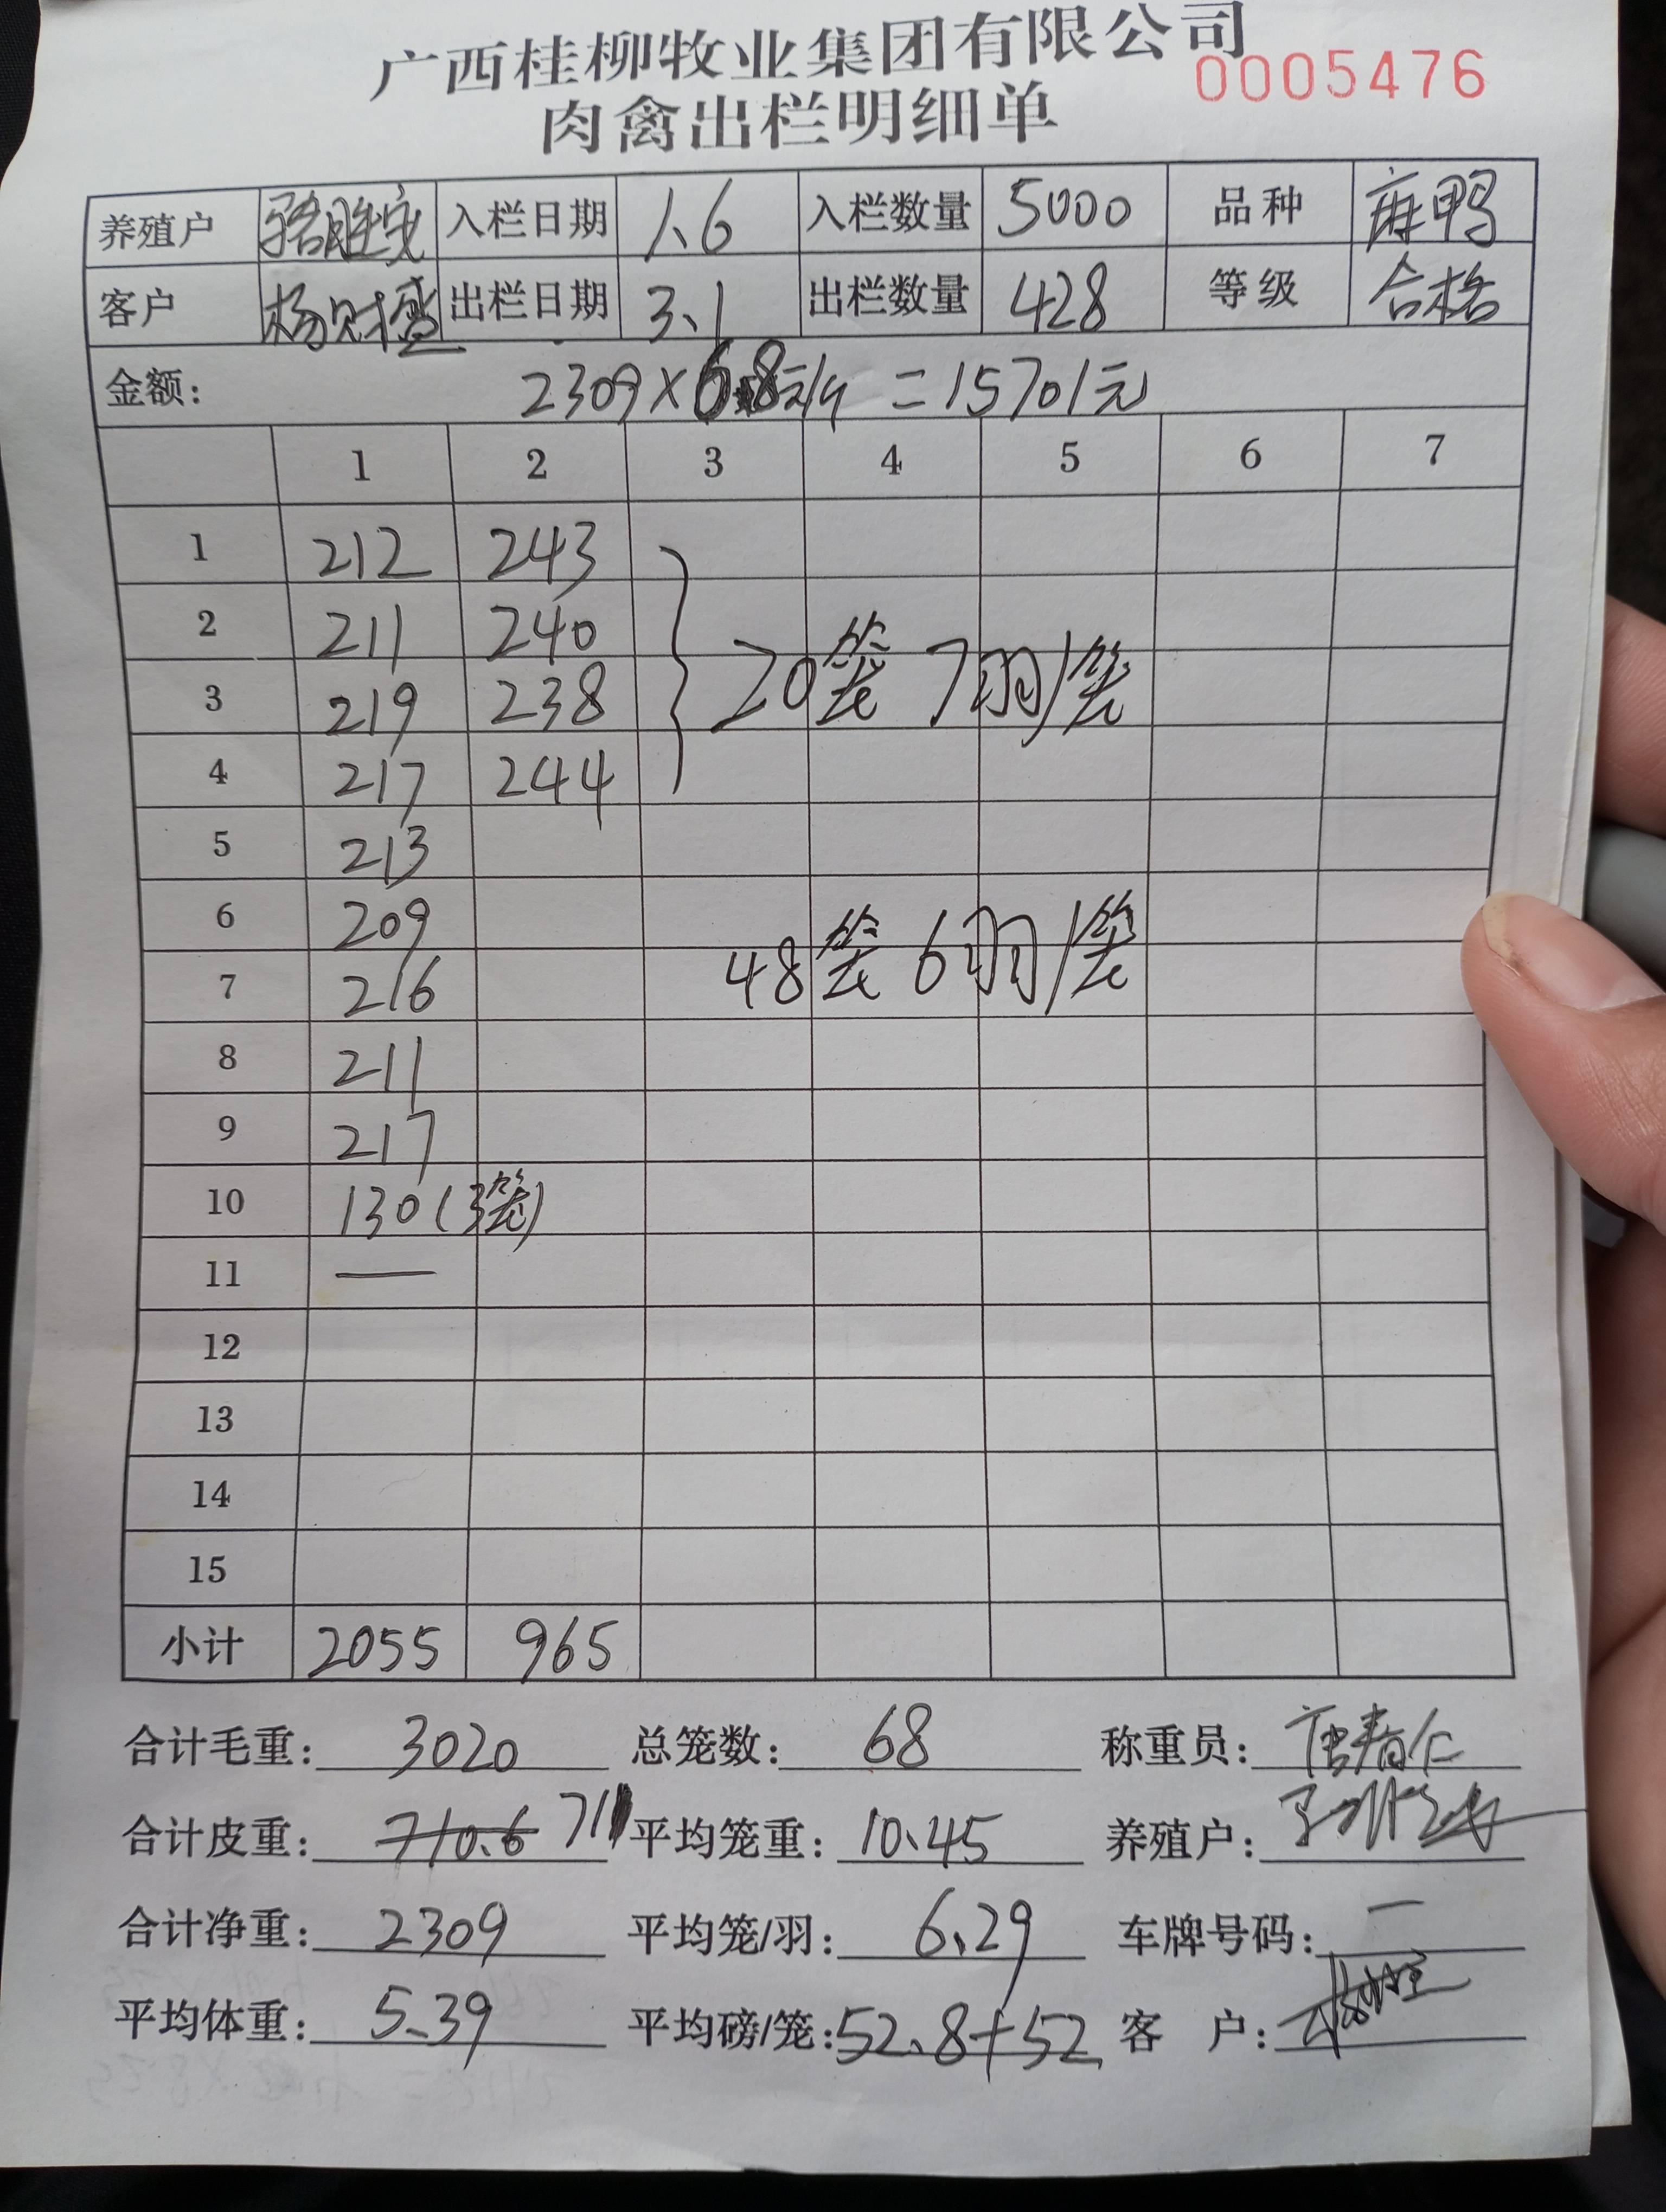 广西桂柳牧业集团有限公司
0005476
肉禽出栏明细单
养殖户 骆胜宝 入栏日期 1、6 入栏数量 5000 品种 麻鸭
客户 杨财盛 出栏日期 3、1 出栏数量 428 等级 合格
金额: 2309×6.8元/斤=15701元
1 2 3 4 5 6 7
1 212 243
2 211 240
3 219 238 20笼 7羽/笼
4 217 244
5 213
6 209
7 216 48笼 6羽/笼
8 211
9 217
10 130(3笼)
11 —
12
13
14
15
小计 2055 965
合计毛重: 3020 总笼数: 68 称重员: 唐春仁
合计皮重: 710.6 711 平均笼重: 10、45 养殖户:
合计净重: 2309 平均笼/羽: 6、29 车牌号码: —
平均体重: 5、39 平均磅/笼: 52、8+52 客 户: